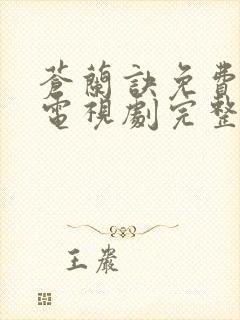 蒼蘭訣免費
電視劇完整
王嚴